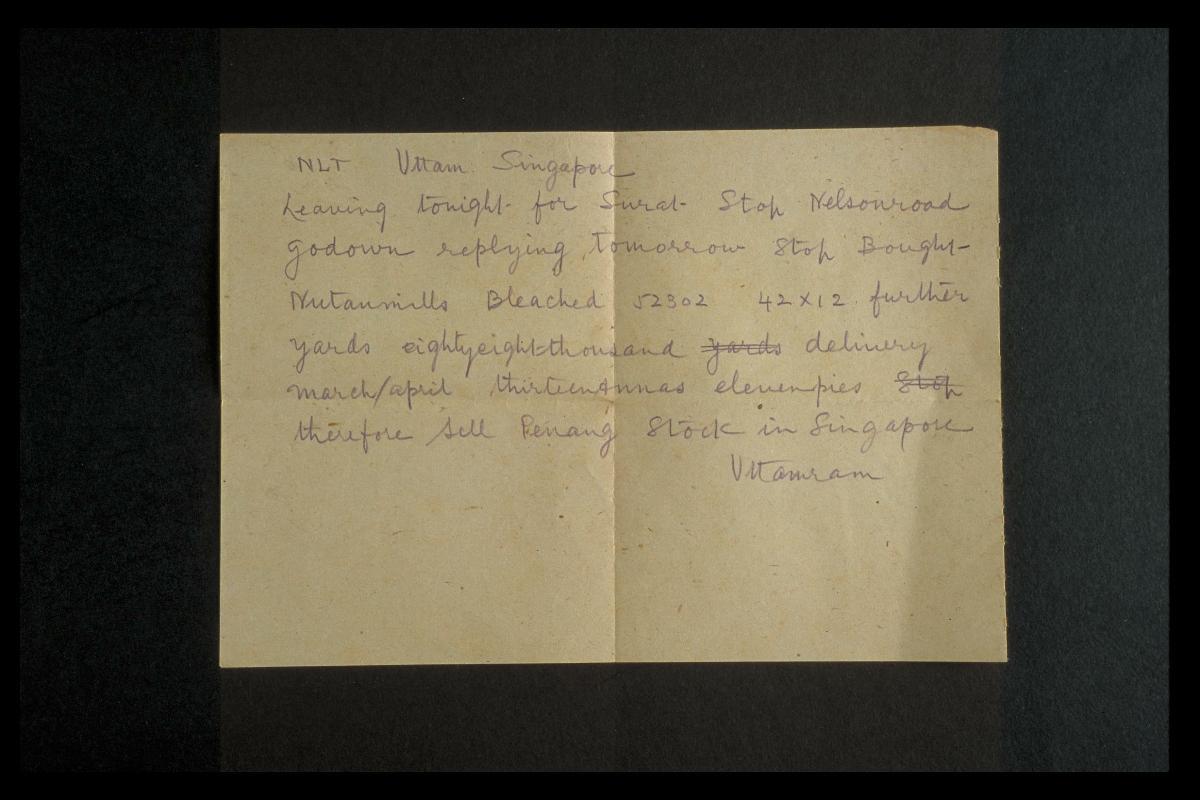 NLT Uttam Singapore
Leaving tonight for Surat Stop Nelsonroad
godown replying tomorrow Stop Bought
Nutanmills Bleached 52302 42x12 further
yards eightyeightthousand yards delivery
march/april thirteenannas elevenpies Stop
therefore sell Penang Stock in Singapore
Uttamram